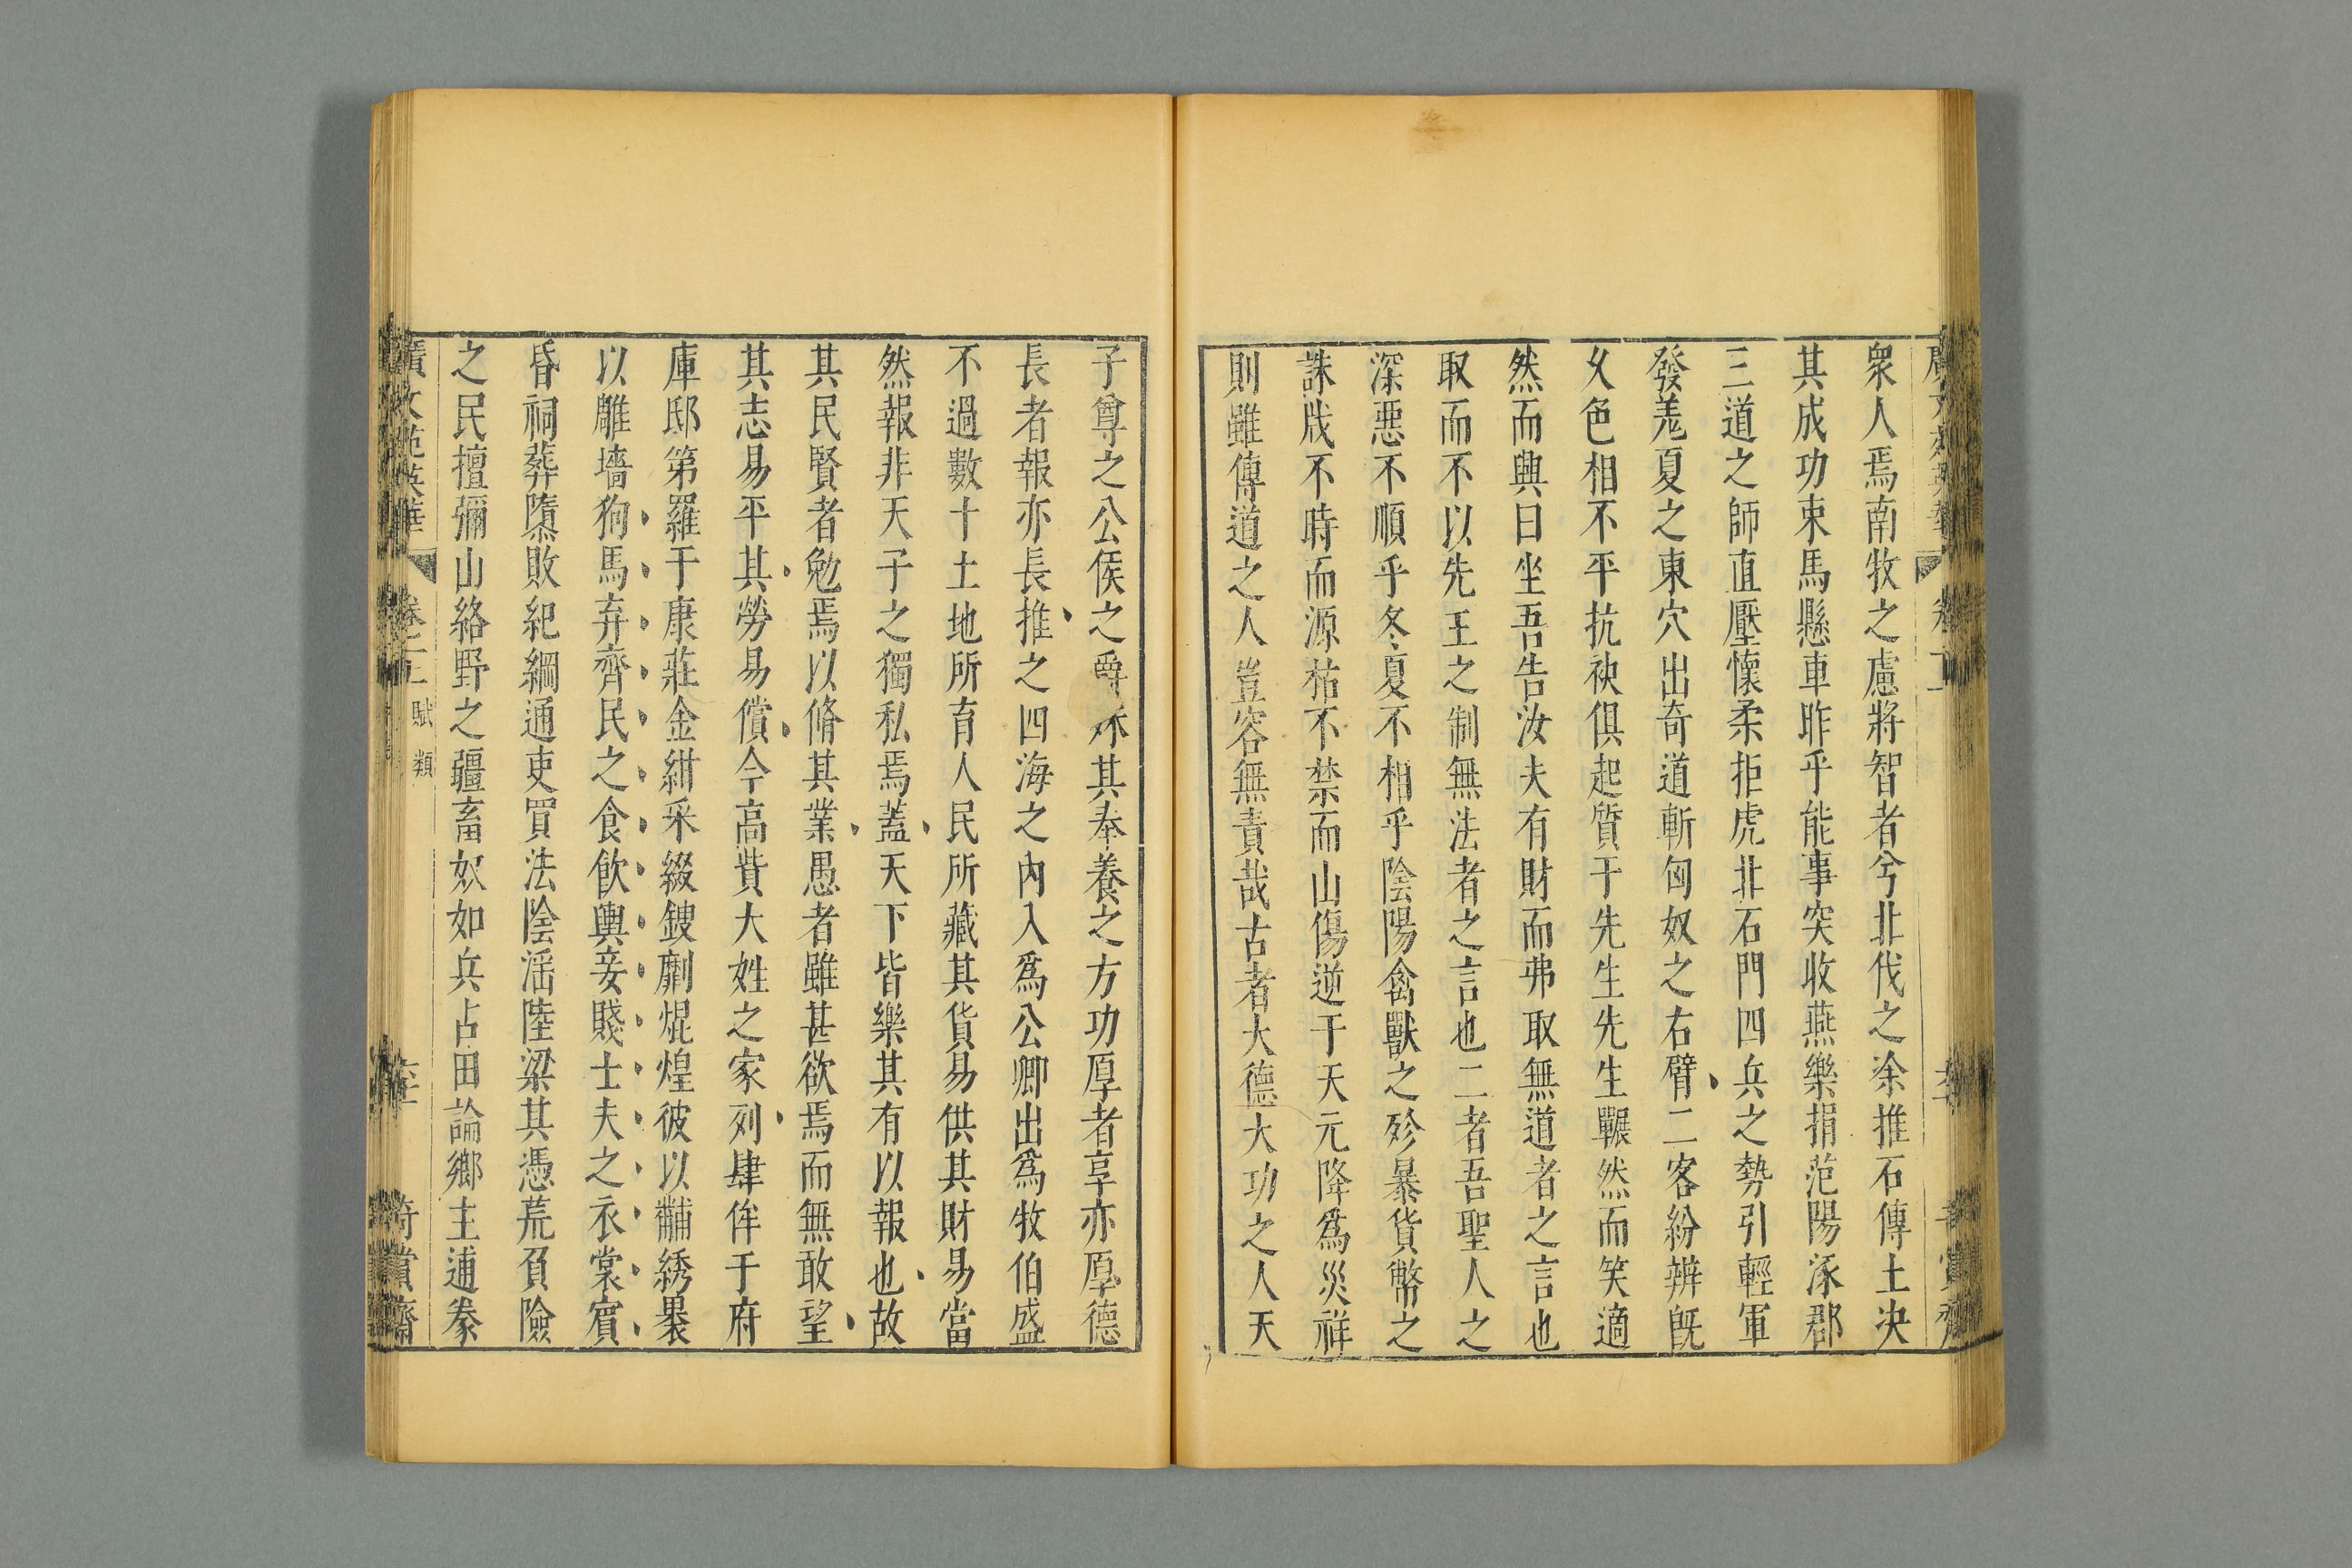 衆人焉南牧之慮將智者兮北伐之涂推石傳土决
其成功束馬懸車昨乎能事突收燕樂捐范陽涿郡
三道之師直壓懷柔拒虎北石門四兵之勢引輕軍
發羌夏之東穴出奇道斬匈奴之右臂二客紛辨旣
乆色相不平抗袂俱起質于先生先生冁然而笑適
然而興曰坐吾告汝夫有財而弗取無道者之言也
取而不以先王之制無法者之言也二者吾聖人之
深惡不順乎冬夏不相乎陰陽禽獸之殄暴貨幣之
誅戕不時而源枯不禁而山傷逆于天元降爲災祥
則雖傳道之人豈容無責哉古者大德大功之人天
子尊之公侯之爵其奉養之方功厚者享亦厚德
長者報亦長推之四海之內入爲公卿出爲牧伯盛
不過數十土地所育人民所藏其貨易供其財易當
然報非天子之獨私焉蓋天下皆樂其有以報也故
其民賢者勉焉以脩其業愚者雖甚欲焉而無敢望
其志易平其勞易償今高貲大姓之家列肆侔于府
庫邸第羅于康莊金紺采綴鍥劘焜煌彼以黼綉褁
以雕墻狗馬弃齊民之食飮輿妾賤士夫之衣裳賓
昏祠葬隳敗紀綱通吏買法陰滛陸梁其憑荒負險
之民擅彌山絡野之疆畜奴如兵占田論鄉主逋豢
廣文苑英華 卷二 賦類 奇賞齋